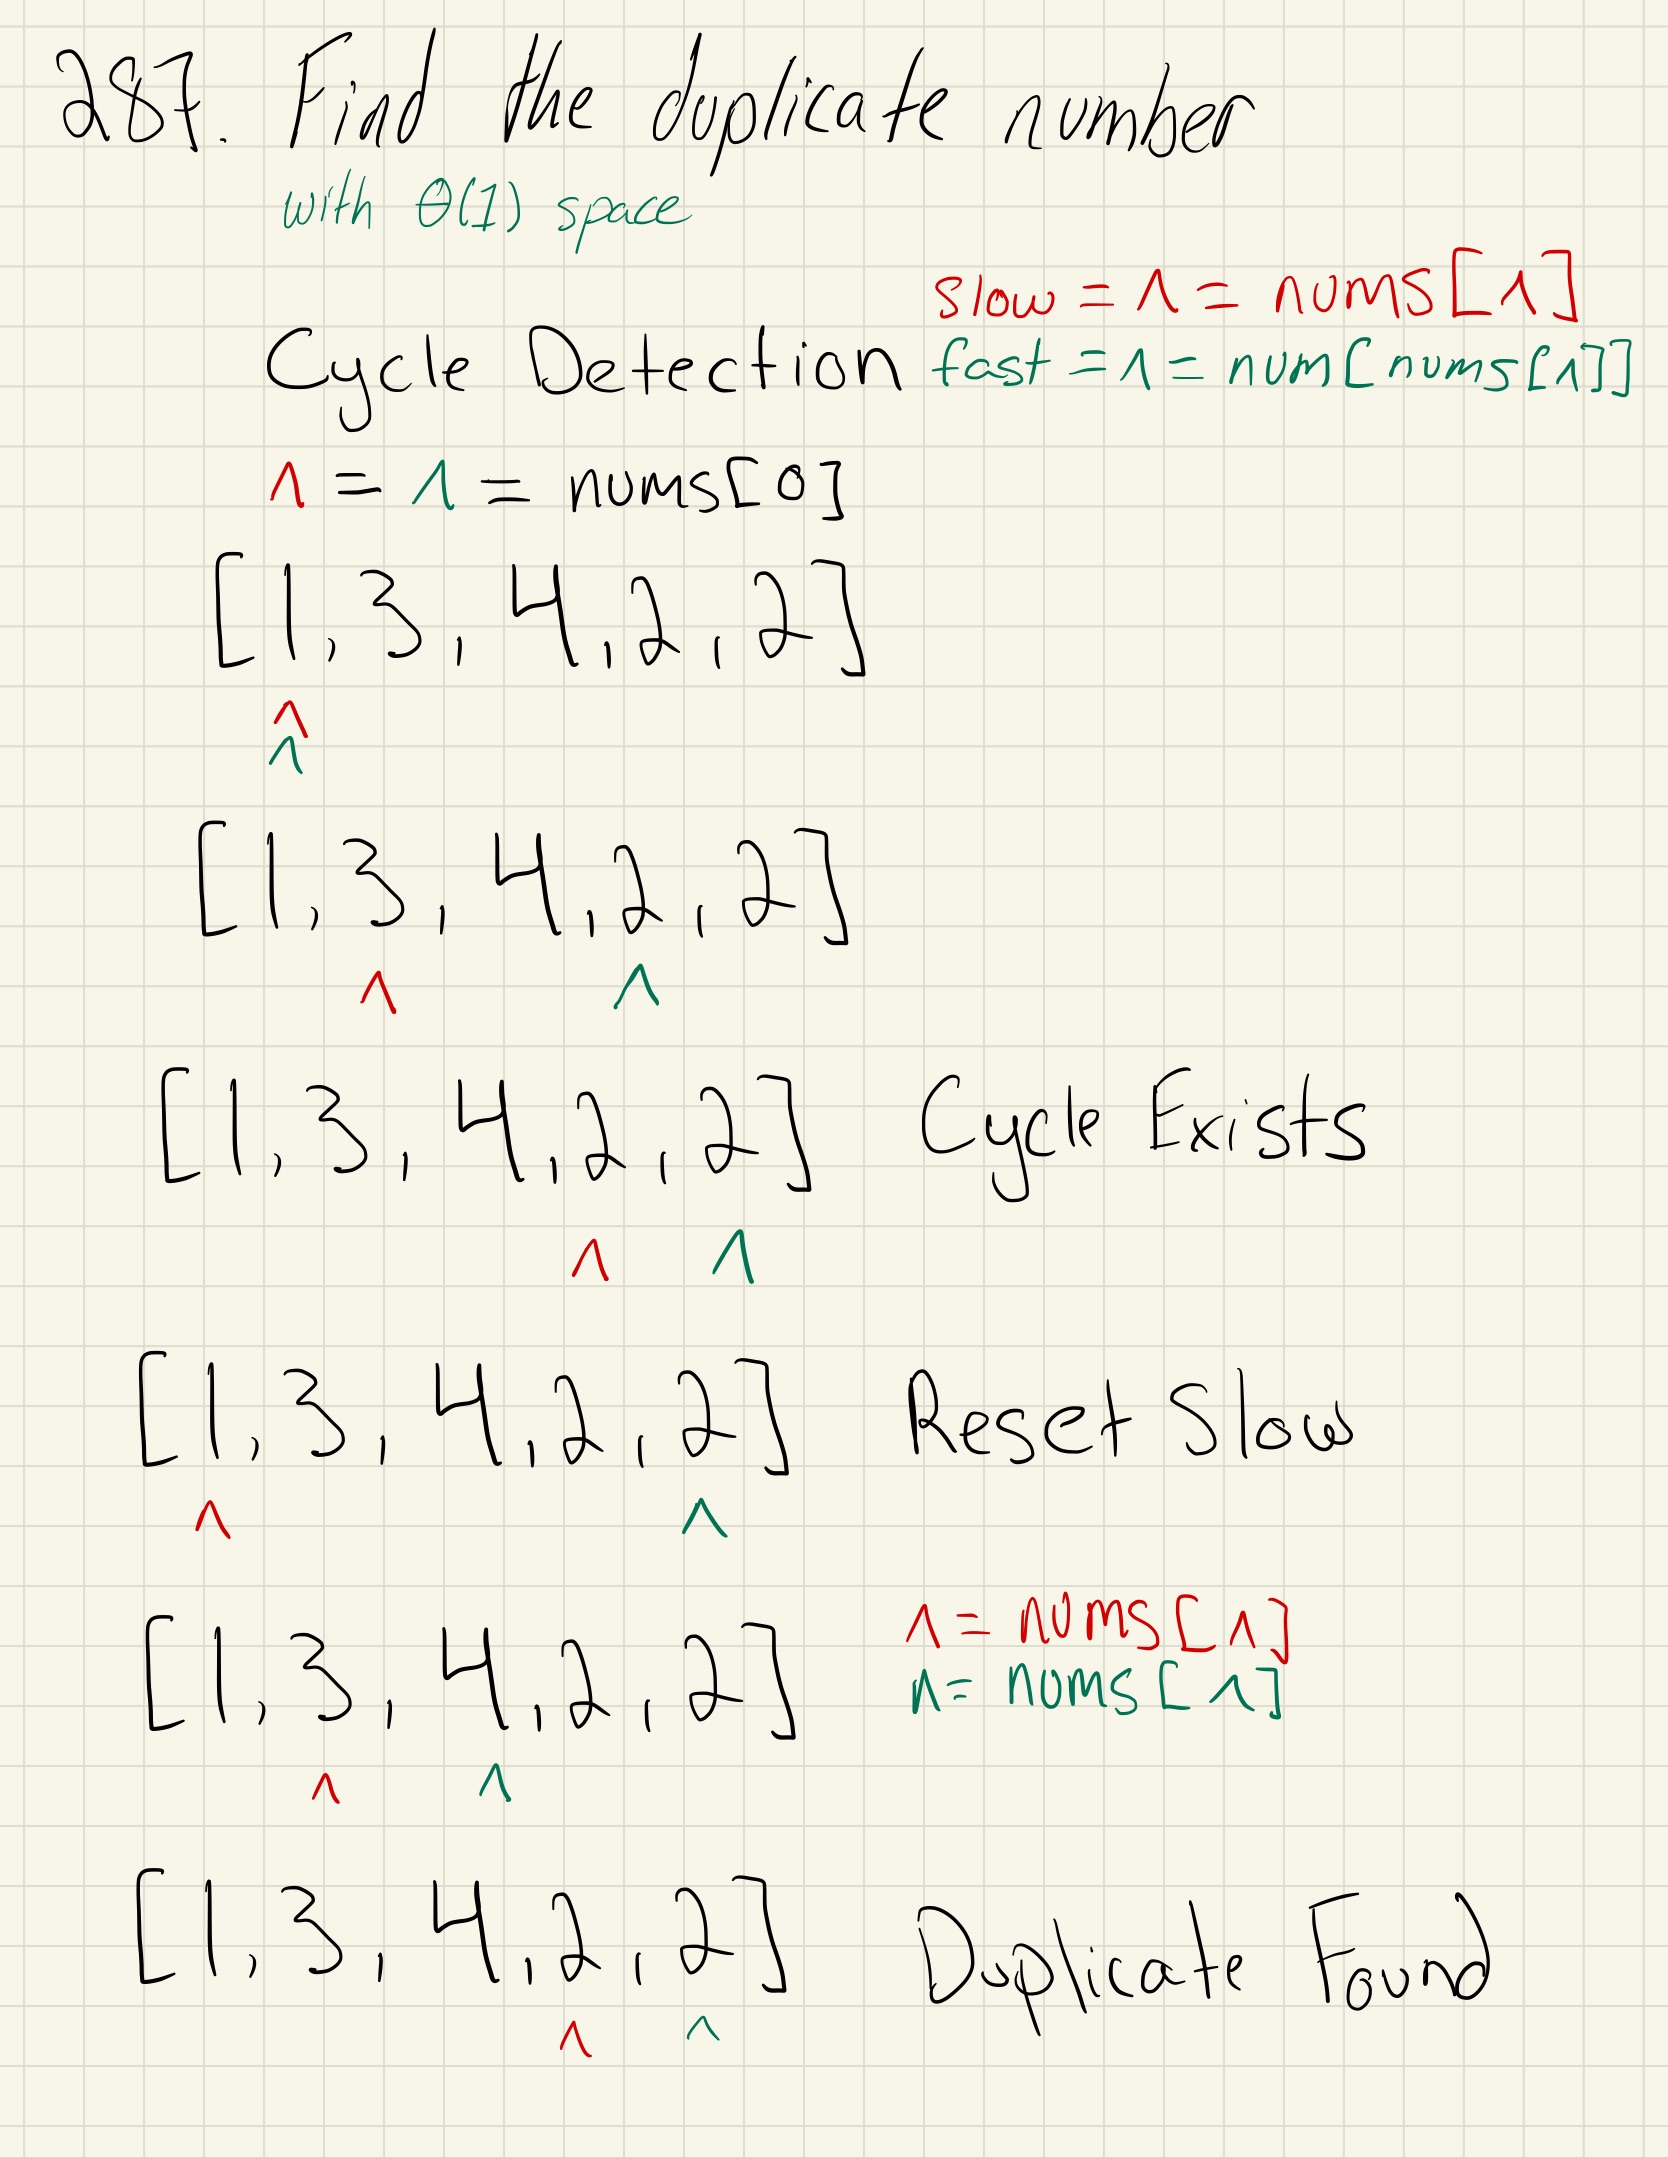 287. Find the duplicate number
with θ(1) space
slow = ^ = nums[^]
Cycle Detection fast = ^ = num[nums[^]]
^ = ^ = nums[0]
[1, 3, 4, 2, 2]
^
^
[1, 3, 4, 2, 2]
^ ^
[1, 3, 4, 2, 2] Cycle Exists
^ ^
[1, 3, 4, 2, 2] Reset Slow
^ ^
^ = nums[^]
[1, 3, 4, 2, 2] ^ = nums[^]
^ ^
[1, 3, 4, 2, 2] Duplicate Found
^ ^